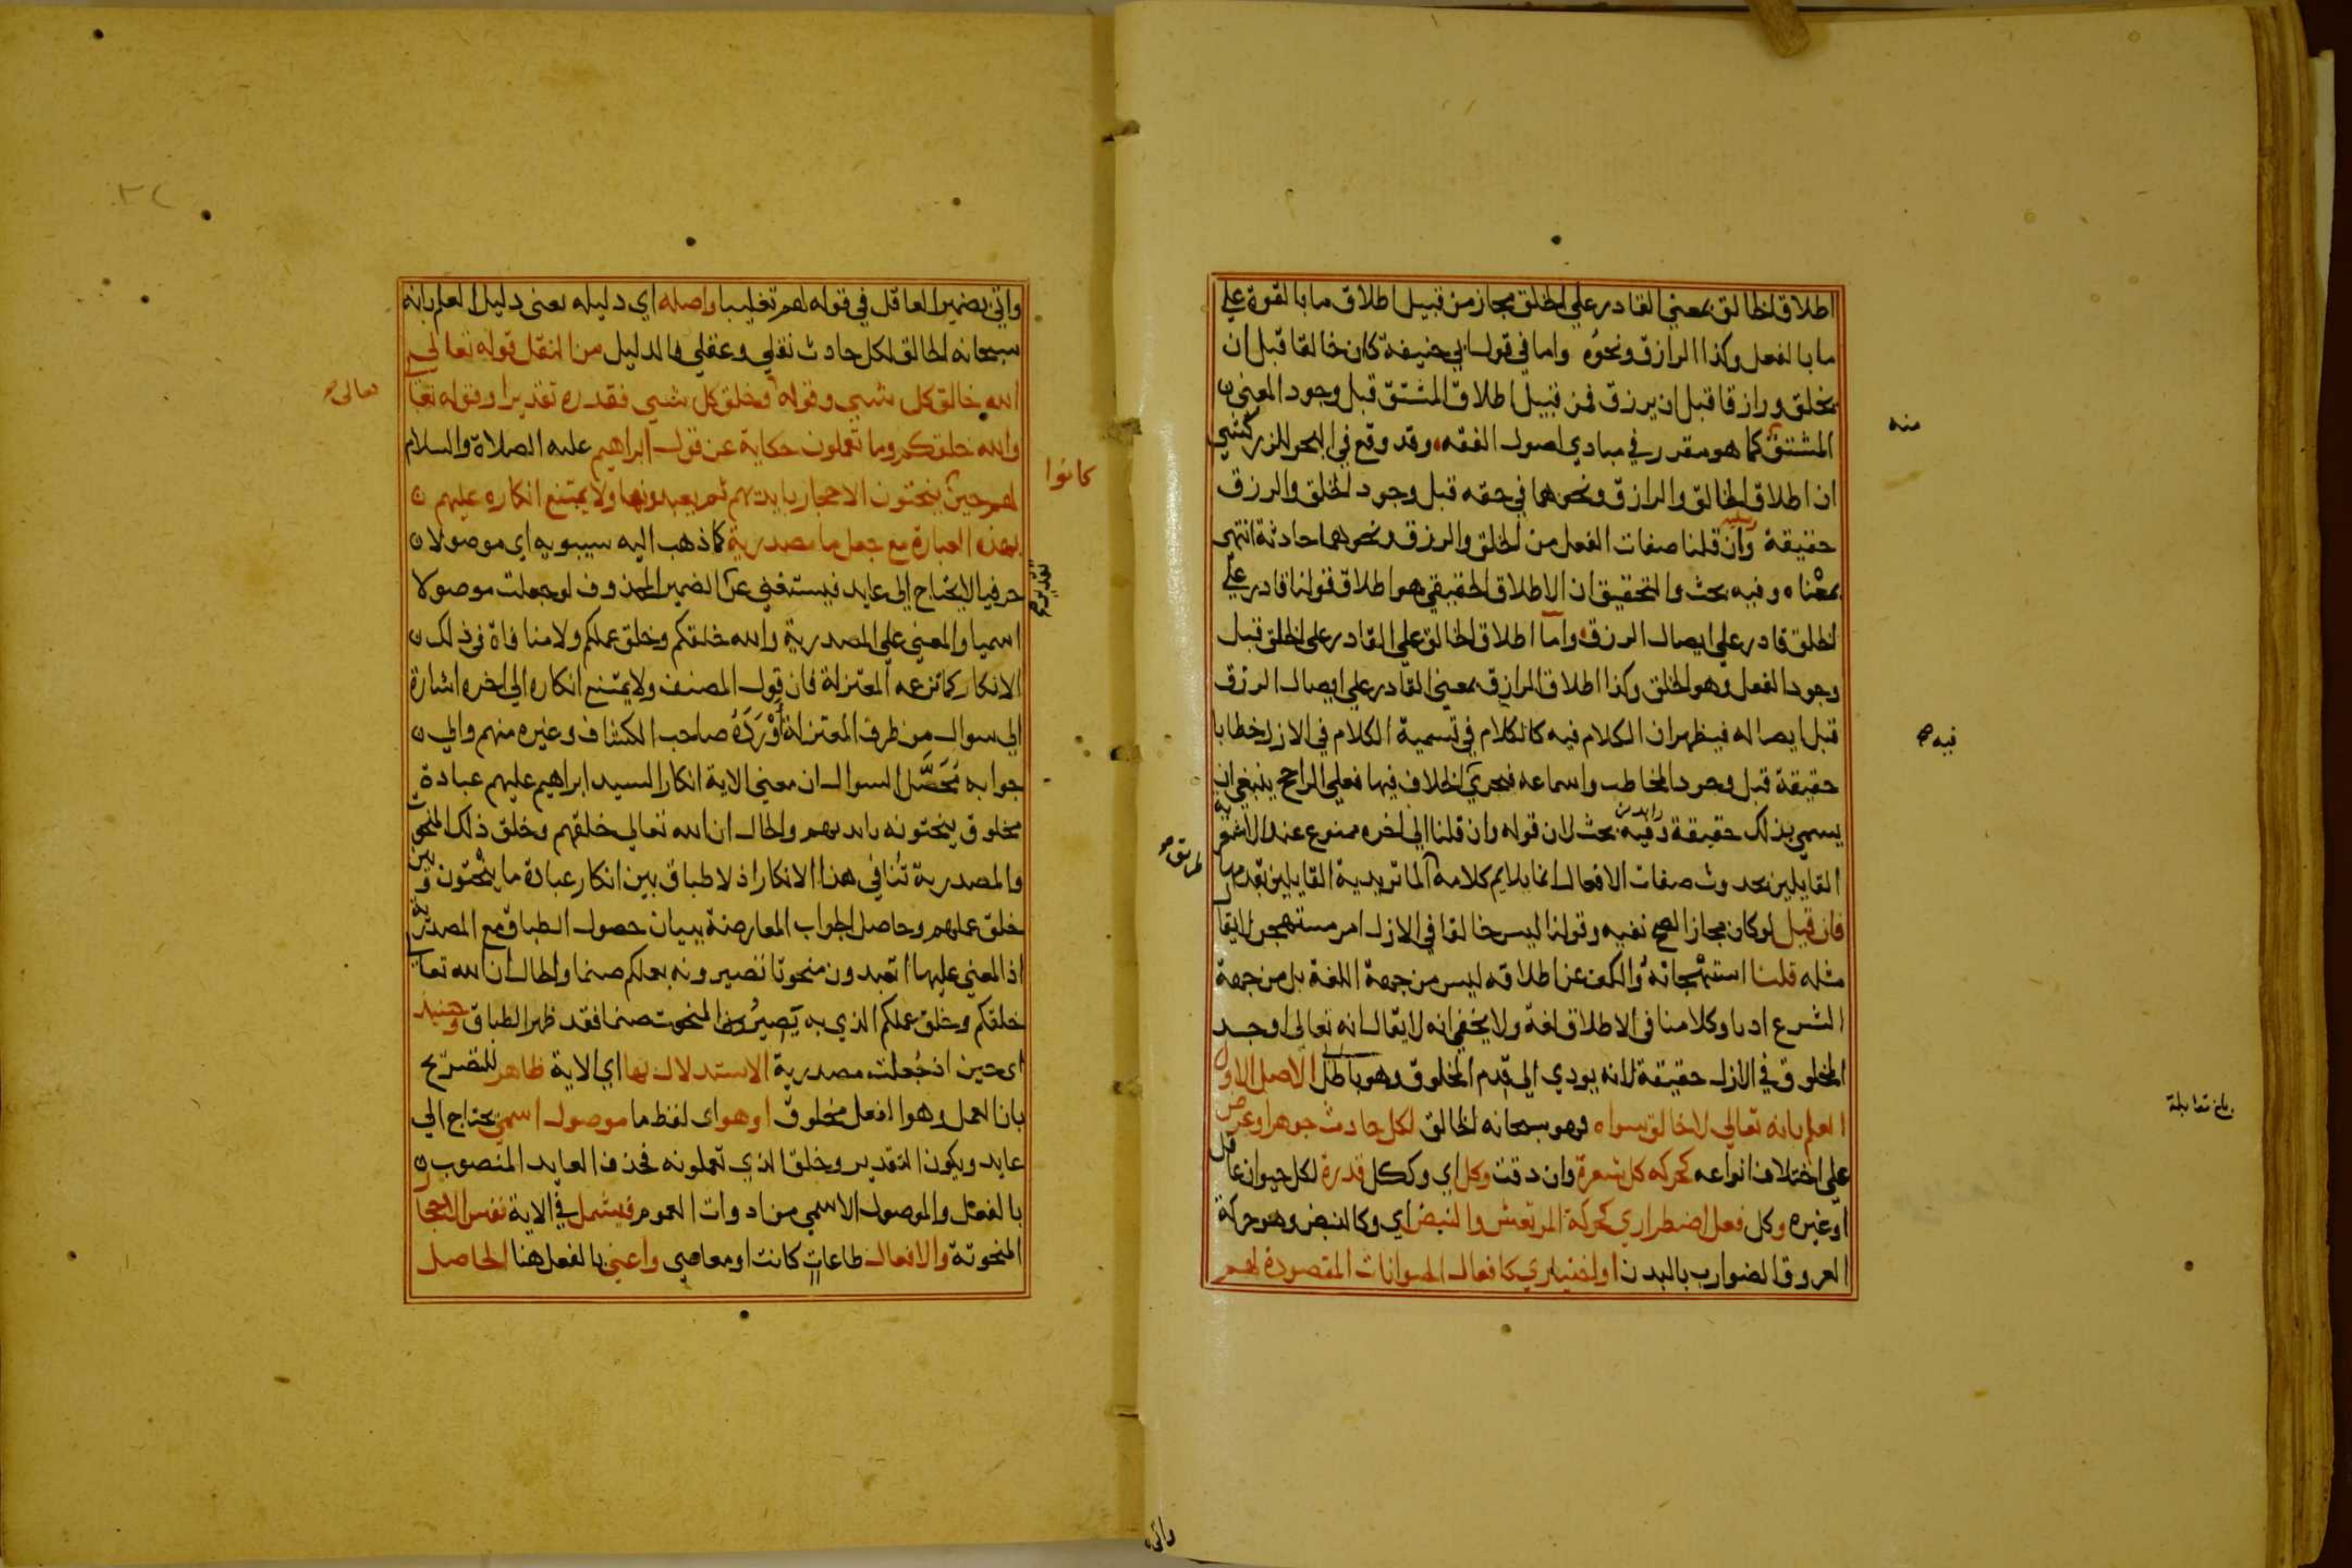 اطلاق الخالق بمعني القادر علي الخلق مجاز من قبيل اطلاق ما بالقوة علي
ما بالفعل وكذا الرازق ونحوه واما في قول ابي حنيفة كان خالقا قبل ان
يخلق ورازقا قبل ان يرزق فمن قبيل اطلاق المشتق قبل وجود المعني
منه
المشتق كما هو مقرر في مبادي اصول الفقه وقد وقع في البحر للزركشي
ان اطلاق الخالق والرازق ونحوهما في حقه قبل وجود الخلق والرزق
حقيقة وان قلنا صفات الفعل من الخلق والرزق ونحوهما حادثة انتهى
بمعناه وفيه بحث والتحقيق ان الاطلاق الحقيقي هو اطلاق قولنا قادر علي
الخلق قادر علي ايصال الرزق واما اطلاق الخالق علي القادر علي الخلق قبل
وجود الفعل وهو الخلق وكذا اطلاق الرازق بمعني القادر علي ايصال الرزق
قبل ايصاله فيظهر ان الكلام فيه كالكلام في تسمية الكلام في الازل خطابا
فيه
حقيقة قبل وجود المخاطب واسماعه فيجري الخلاف فيها فعلي الراجح ينبغي ان
يسمي بذلك حقيقة وفيه بحث لان قوله وان قلنا الي اخره ممنوع عند الاشعرية
القايلين بحدوث صفات الافعال انما يلايم كلامه الماتريدية القايلين بقدمها
طريق
فان قيل لو كان مجازا لصح نفيه وقولنا ليس خالقا في الازل امر مستهجن لا يقال
مثله قلنا استهجانه والكف عن اطلاقه ليس من جهة اللغة بل من جهة
الشرع ادبا وكلامنا في الاطلاق لغة ولا يخفي انه لا يقال انه تعالى اوجد
المخلوق في الازل حقيقة لانه يودي الي قدم المخلوق وهو باطل الاصل الاول
العلم بانه تعالي لا خالق سواه فهو سبحانه الخالق لكل حادث جوهر او عرض
بلغ مقابلة
علي اختلاف انواعه كحركه كل شعرة وان دقت وكل اي وككل قدرة لكل حيوان عاقل
او غيره وكل فعل اضطراري كحركة المرتعش والنبض اي وكالنبض وهو حركة
العروق الضوارب بالبدن او اختياري كافعال الحيوانات المقصودة لهم
واتي
واتي بضمير العاقل في قوله لهم تغليبا واصله اي دليله يعني دليل العلم بانه
سبحانه الخالق لكل حادث نقلي وعقلي فالدليل من النقل قوله تعالي
الله خالق كل شيي وقوله وخلق كل شيي فقدره تقديرا وقوله تعا
تعالى
والله خلقكم وما تعملون حكاية عن قول ابراهيم عليه الصلاة والسلام
لهم حين ينحتون الاحجار بايديهم ثم يعبدونها ولا يمتنع انكاره عليهم
كانوا
بهذه العبارة مع جعل ما مصدرية كما ذهب اليه سيبويه اي موصولا
حرفيا لا يحتاج الي عايد فيستغني عن الضمير المحذوف لو جعلت موصولا
تقدير
اسميا والمعني علي المصدرية والله خلقكم وخلق عملكم ولا منافاة في ذلك
الانكار كما تزعمه المعتزلة فان قول المصنف ولا يمتنع انكاره الي اخره اشارة
الي سوال من طرف المعتزلة اورده صاحب الكشاف وغيره منهم والي
جوابه محصل السوال ان معني الاية انكار السيد ابراهيم عليهم عبادة
مخلوق ينحتونه بايديهم والحال ان الله تعالي خلقهم وخلق ذلك المنحوت
والمصدرية تنافي هذا الانكار اذ لا طباق بين انكار عبادة ما ينحتون وبين
خلق عملهم وحاصل الجواب المعارضة ببيان حصول الطباق مع المصدرية
اذ المعني عليها اتعبدون منحوتا تصيرونه بعملكم صنما والحال ان الله تعالي
خلقكم وخلق عملكم الذي به يصير المنحوت صنما فقد ظهر الطباق وحينيذ
اي حين اذ جعلت مصدرية الاستدلال بها اي الاية ظاهر للتصريح
بان العمل وهو الفعل مخلوق او هو اى لفظ ما موصول اسمي يحتاج الي
عايد ويكون التقدير وخلق الذي تعملونه فحذف العايد المنصوب
بالفعل والموصول الاسمي من ادوات العموم فيشمل في الاية نفس الاحجار
المنحوتة والافعال طاعات كانت او معاصي واعني بالفعل هنا الحاصل